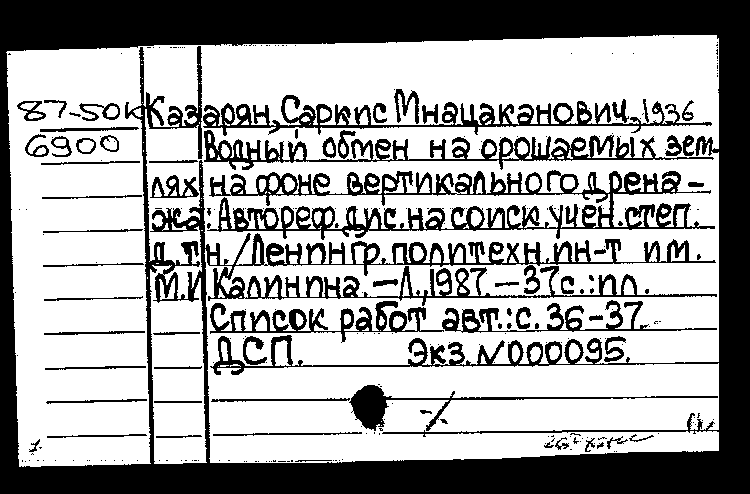 87-50к Казарян, Саркис Мнацаканович, 1936
6900 Водный обмен на орошаемых зем-
лях на фоне вертикального дрена-
жа: Автореф. дис. на соиск. учен. степ.
д.т.н. / Ленингр. политехн. ин-т им.
М.И. Калинина. — Л., 1987. — 37с.: ил.
Список работ авт.: с. 36-37.
ДСП. Экз. N000095.